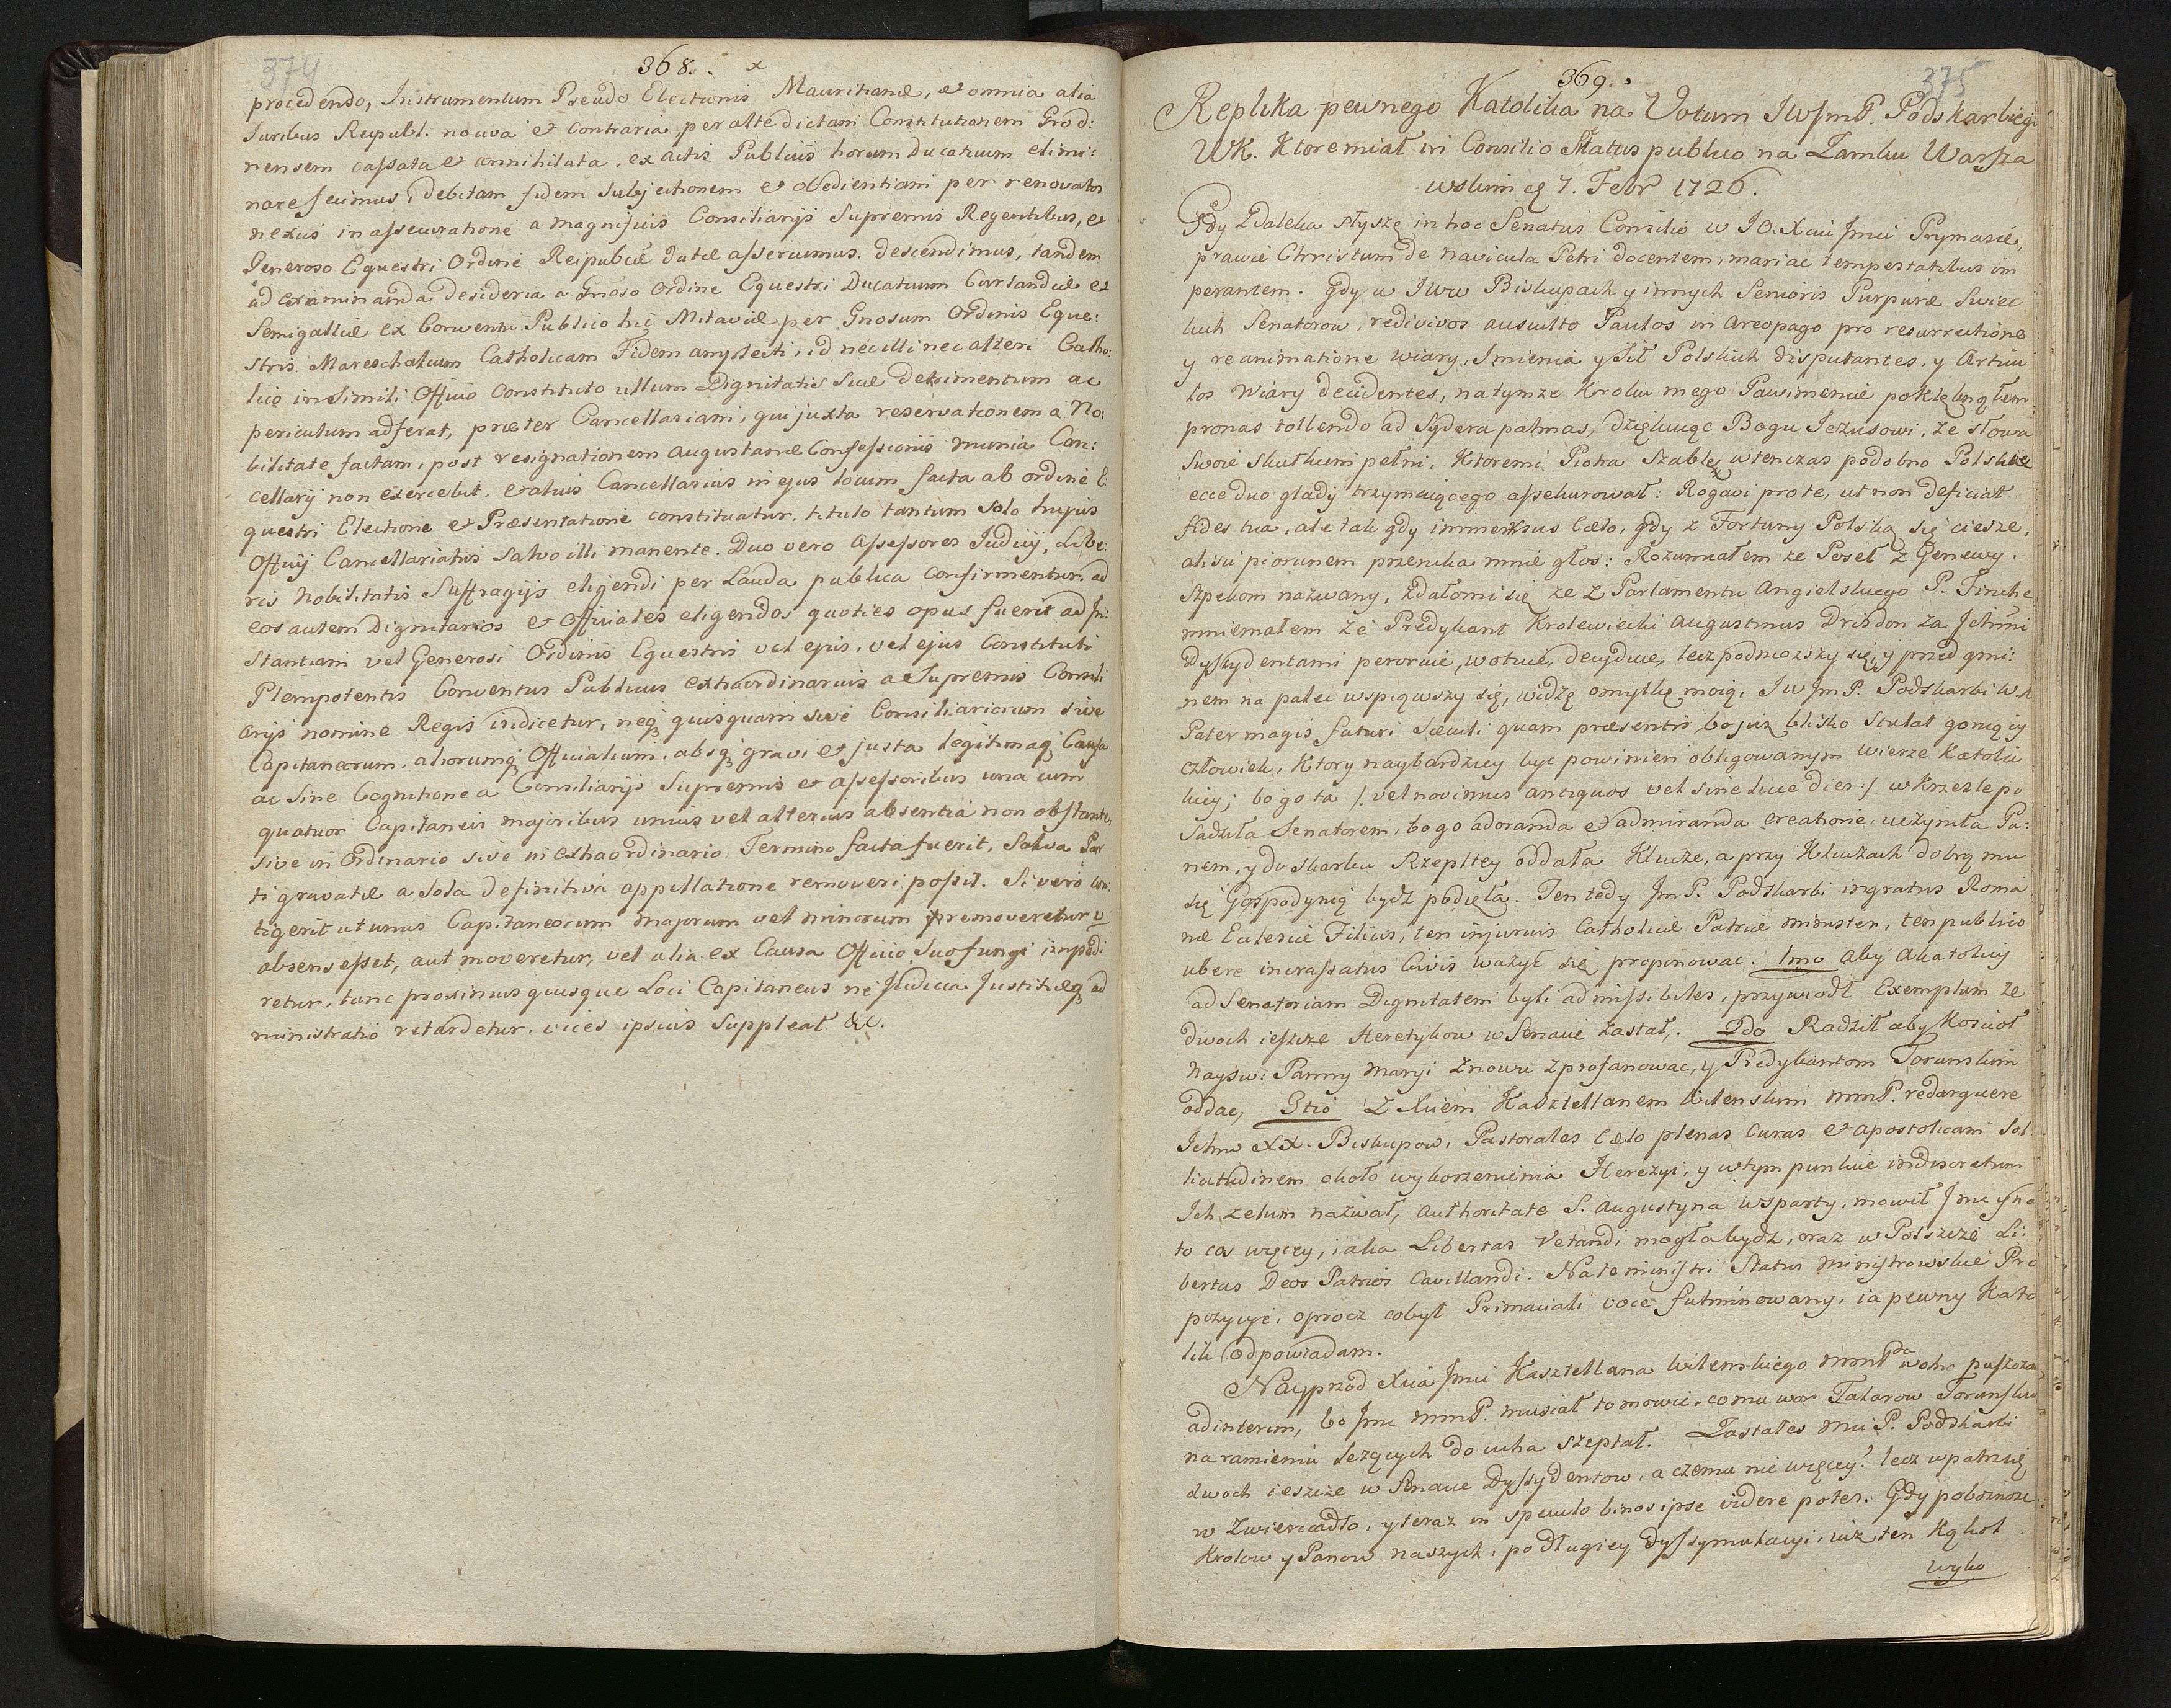 374
368. x
procedendo, Instrumentum Pseudo Electionis Mauritianæ, et omnia alia
Juribus Reipubl. nociva et contraria per altè dictam Constitutionem Grod:
nensem caſsata et annihilata, ex actis Publicis horum Ducatuum elimi:
nare fecimus, debitam fidem subjectionem et obedientiam per renovatos
nexus in aſsecuratione a magnificis Consiliarijs Supremis Regentibus, et
Generoso Equestri Ordine Reipublcæ datæ aſseruimus. descendimus, tandem
ad examinanda desideria a Gnoso Ordine Equestri Ducatuum Curlandiæ et
Semigalliæ ex Conventu Publico hic Mitaviæ per Gnosum Ordinis Eque:
stris Mareschalcum Catholicam Fidem amplecti, id nec illi nec alteri Catho:
lico in simili Officio constituto ullum Dignitatis suæ detrimentum ac
periculum adferat, præter Cancellariam, qui juxta reservationem a No:
bilitate factam, post resignationem Augustanæ Confeſsionis munia Can:
cellarij non exercebit, et alius Cancellarius in ejus locum facta ab ordine E:
questri Electione et Præsentatione constituatur, titulo tantum solo hujus
Officij Cancellariatus salvo illi manente. Duo vero Aſseſsores Judicij, Libe:
ris Nobilitatis Suffragijs eligendi per Lauda publica confirmentur, ad
eos autem Dignitarios et Officiales eligendos quoties opus fuerit ad In:
stantiam vel Generosi Ordinis Equestris vel ejus, vel ejus Constituti
Plenipotentis Conventus Publicus extraordinarius a Supremis Consili
arijs nomine Regis indicetur, neq quisquam sive Consiliariorum sive
Capitaneorum, aliorumq Officialium, absq gravi et justa legitimaq Causa
ac sine Cognitione a Consiliarijs Supremis et aſseſsoribus una cum
quatuor Capitaneis majoribus unius vel alterius absentia non obstante,
sive in Ordinario sive in extraordinario Termino facta fuerit, Salva Par
ti gravatæ a sola definitiva appellatione removeri poſsit. Si vero con:
tigerit ut unus Capitaneorum majorum vel minorum promoveretur v
absens eſset, aut moveretur, vel alia ex Causa Officio suo fungi impedi
retur, tunc proximus quisque Loci Capitaneus ne Judicia Justitiæq ad
ministratio retardetur, vices ipsius suppleat &c.
375
369.
Replika pewnego Katolika na Votum JWJmP. Podskarbiego
WK. Ktore miał in Consilio Status publico na Zamku Warsza
wskim d 7. Febr 1726.
Gdy Zdaleka słyszę in hoc Senatus Consilio w JO. Xciu Jmci Prymasie,
prawie Christum de navicula Petri docentem, mari ac tempestatibus im
perantem. Gdy w JWW Biskupach y innych Senioris Purpuræ Swiec
kich Senatorow, redivivos ausculto Paulos in Areopago pro resurrectione
y reanimatione wiary, Imienia y Sił Polskich disputantes, y Artiku
łos Wiary decidentes, na tymże Krolu mego Pawimencie poklęknąłem
pronas tollendo ad Sydera palmas, dziękuiąc Bogu Jezusowi, że słowa
swoie skutkiem pełni, Ktoremi Piotra Szablę wtenczas podobno Polskie
ecce duo gladij trzymaiącego aſsekurował: Rogavi pro te, ut non deficiat
fides tua, ale tak gdy immersus Cælo, gdy z Fortuny Polską się ciesze,
alisci piorunem przenika mnie głos: Rozumiałem ze Poseł z Genewy.
Szpekom nazwany, zdałomi się ze z Parlamentu Angielskiego P. Finche
mniemałem że Predykant Krolewiecki Augustinus Drisdon za Jchmi
Dyſsydentami peroruie, wotuie, decyduie, lecz podniozszy się, y przed gmi:
nem na palce wspiąwszy się, widzę omyłkę moią, Jw Jm P. Podskarbi WK
Pater magis futuri sæculi quam præsentis, bo juz blisko Stulat goniący
człowiek, Ktory naybardziey byc powinien obligowanym Wierze Katoli
ckiey; bo go ta /: vel novimus antiquos vel sine luce dies :/ w krześle po
sadziła Senatorem, bo go adoranda et admiranda creatione uczyniła Pa:
nem, y do skarbu Rzepltey oddała Klucze, a przy Kluczach dobrą mu
się Gospodynią bydz podięła. Ten tedy Jm P. Podskarbi ingratus Roma
næ Ecclesiæ Filius, ten injurius Catholicæ Patriæ minister, ten publico
ubere incraſsatus Civis ważył się proponowac. 1mo aby Akatolicy
ad Senatoriam Dignitatem byli admiſsibiles, przywiodł Exemplum ze
dwoch ieszcze Heretykow w Senacie zastał. 2do Radził aby Koscioł
Nayśw: Panny Maryi znowu zprofanowac, y Predykantom Torunskim
oddac, 3tio Z Xciem Kasztellanem Wilenskim mmP. redarguere
Jchm XX. Biskupow, Pastorales Cælo plenas curas et apostolicam Sol
licitudinem około wykorzenienia Herezyi, y wtym punkcie indiscretum
Ich zelum nazwał, authoritate S. Augustyna wsparty, mowił Jmc y na
to co więcey, iaka Libertas Vetandi mogła bydz, oraz w Polszcze Li:
bertas Deos Patrios Cavillandi. Na te ministri Status Ministrowskie Pro
pozycye, oprocz co był Primaciali voce fulminowany, ia pewny Kato
lik odpowiadam.
Nayprzod Xcia Jmci Kasztellana Wilenskiego mmPda wolno puszcza
ad interim, bo Jmc mmP. musiał to mowic, co mu wor Talarow Torunskich
na ramieniu leżących do ucha szeptał. Zastałes Mci P. Podskarbi
dwoch ieszcze w Senacie Dyſsydentow, a czemu nie więcey? lecz wpatrz się
w Zwierciadło, y teraz in speculo binos ipse videre potes. Gdy poboznosc
Krolow y Panow naszych, po długiey dyſsymulacyi, iuż ten Kąkol
wyko